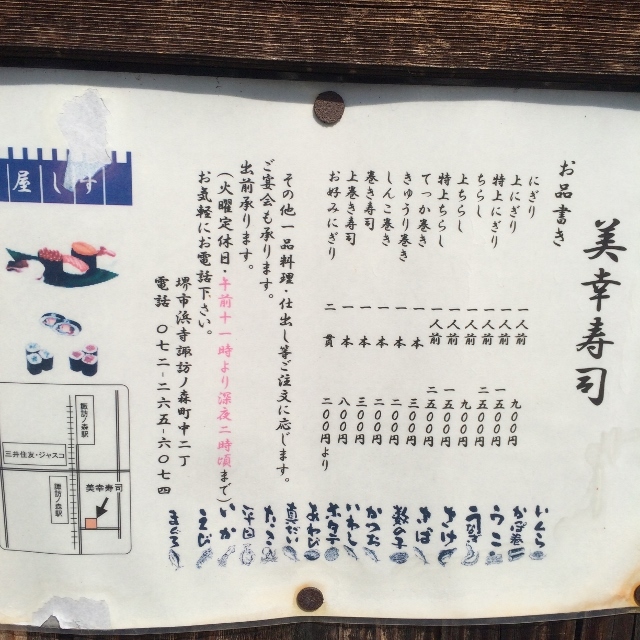 美幸寿司
お品書き
にぎり 一人前 九〇〇円
上にぎり 一人前 一五〇〇円
特上にぎり 一人前 二五〇〇円
ちらし 一人前 九〇〇円
上ちらし 一人前 一五〇〇円
特上ちらし 一人前 二五〇〇円
てっか巻き 一本 三〇〇円
きゅうり巻き 一本 二〇〇円
しんこ巻き 一本 二〇〇円
巻き寿司 一本 三〇〇円
上巻き寿司 一本 八〇〇円
お好みにぎり 二貫 二〇〇円より
その他一品料理・仕出し等ご注文に応じます。
ご宴会も承ります。
出前承ります。
(火曜定休日・午前十一時より深夜二時頃まで)
お気軽にお電話下さい。
堺市浜寺諏訪ノ森町中二丁
電話 〇七二-二六五-六〇七四
いくら
かっぱ巻
うに
うなぎ
さけ
さば
数の子
かつお
いわし
ホタテ
あわび
真だい
たこ
いか
えび
まぐろ
すし屋
諏訪ノ森駅
三井住友・ジャスコ
諏訪ノ森駅
美幸寿司